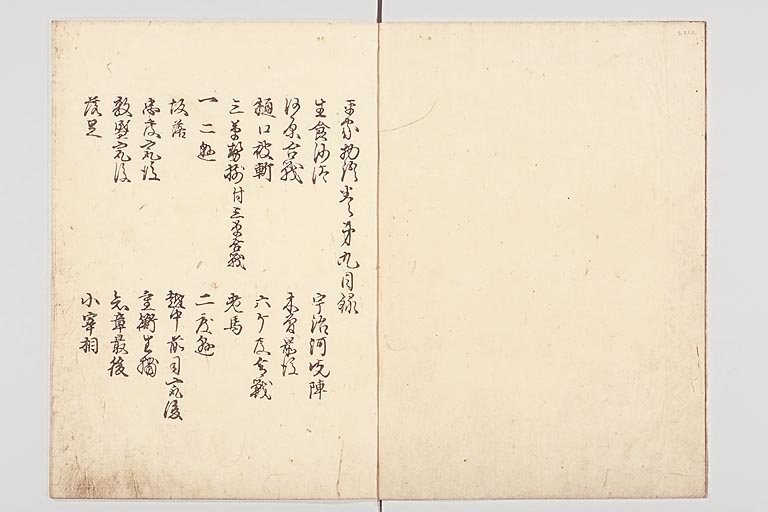 平家物語巻第九目録
生食沙汰　宇治河先陣
河原合戦　木曽最後
樋口被斬　六ケ度合戦
三草勢揃付三草合戦　老馬
一二懸　二度懸
坂落　越中前司最後
忠度最後　重衡生捕
敦盛最後　知章最後
落足　小宰相